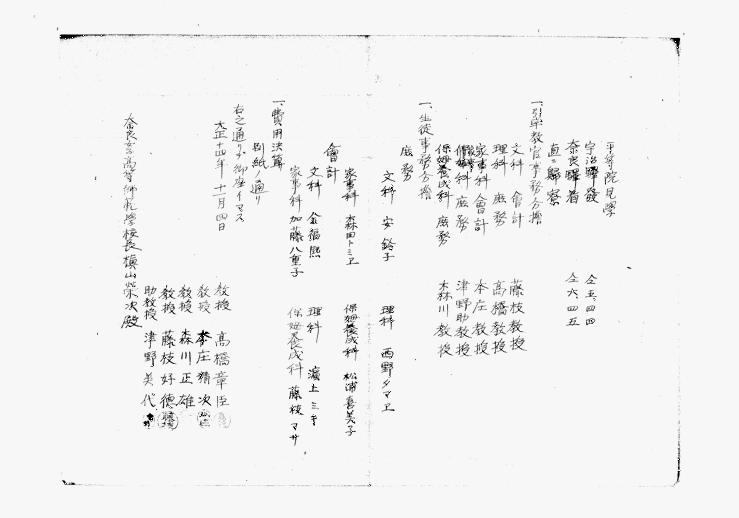 平等院見学
宇治驛發 仝五、四四
奈良驛着 仝六、四五
直ニ歸寮
一、引率教官事務分擔
文科 會計 藤枝教授
理科 庶務 髙橋教授
家事科 會計 本庄教授
家事科 庶務 津野助教授
保姆養成科 庶務 森川教授
一、生徒事務分擔
庶務
文科 安鈴子 理科 西野タマヱ
家事科 森田トミヱ 保姆養成科 松浦喜美子
會計
文科 金福熙 理科 濱上ミキ
家事科 加藤八重子 保姆養成科 藤枝マサ
一、費用決算
別紙ノ通リ
右之通リデ御座イマス
大正十四年十一月四日
教授 髙橋章臣
教授 本庄精次
教授 森川正雄
教授 藤枝好德
助教授 津野美代
奈良女子高等師範學校長 槇山榮次殿